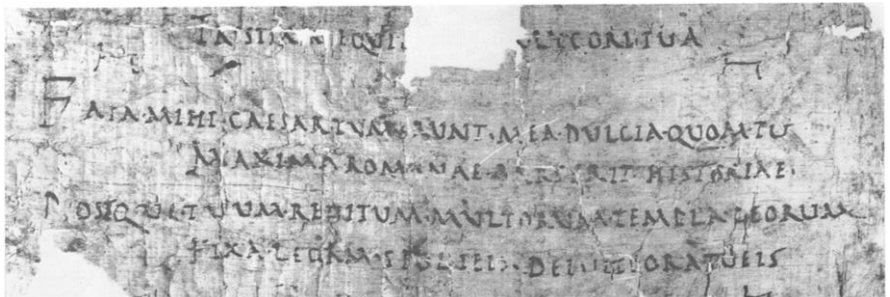 TRISTIA·NEQUIT A·LYCORI·TUA
FATA·MIHI·CAESAR·TUM·ERUNT·MEA·DULCIA·QUOM·TU
MAXIMA·ROMANAE·PARS·ERIT·HISTORIAE
POSTQUE·TUUM·REDITUM·MULTORUM·TEMPLA·DEORUM
FIXA·LEGAM·SPOLIEIS·DEIVITIORA·TUEIS